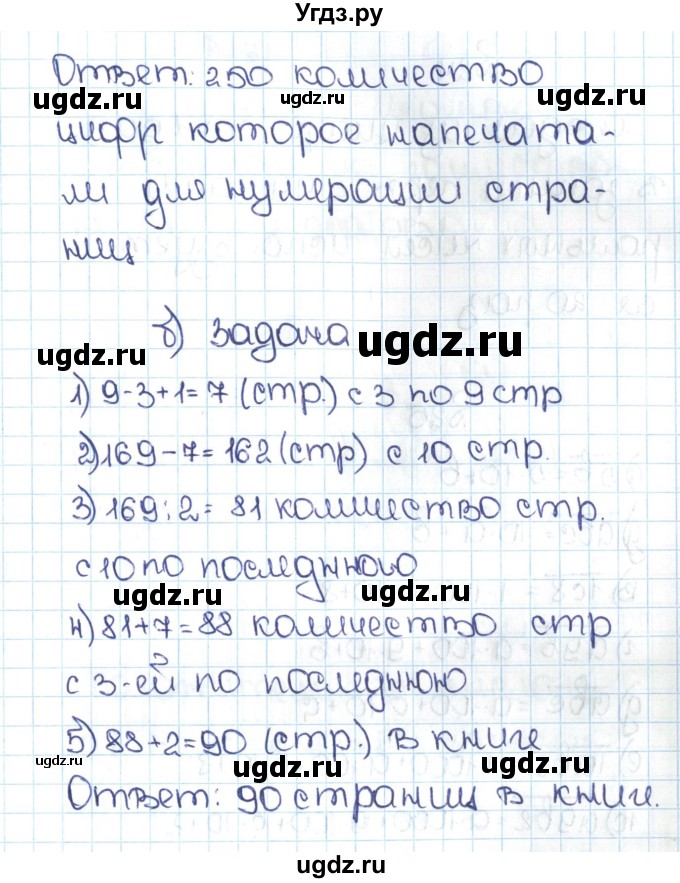 Угдз.ру
Ответ: 250 количество
ugdz.ru ugdz.ru ugdz.ru
цифр которое напечата-
ли для нумерации стра-
ниц
б) задача
ugdz.ru ugdz.ru
1) 9-3+1=7 (стр.) с 3 по 9 стр
2) 169-7=162 (стр) с 10 стр.
3) 169:2= 81 количество стр.
с 10 по последнюю
ugdz.ru ugdz.ru
4) 81+7=88 количество стр
с 3-ей по последнюю
5) 88+2=90 (стр.) в книге
ugdz.ru ugdz.ru ugdz.ru
Ответ: 90 страниц в книге.
ugdz.ru